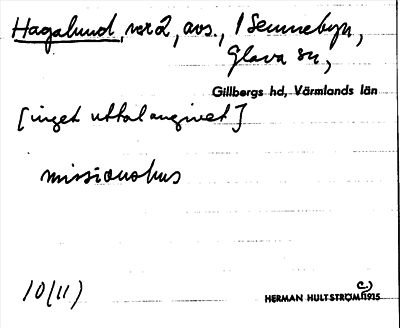 Hagalund, nr 2, avs., 1 Sennebyn,
Glava sn,
Gillbergs hd, Värmlands län
[inget uttal angivet]
missionshus
10(11)
c.)
HERMAN HULTSTRÖM 1915